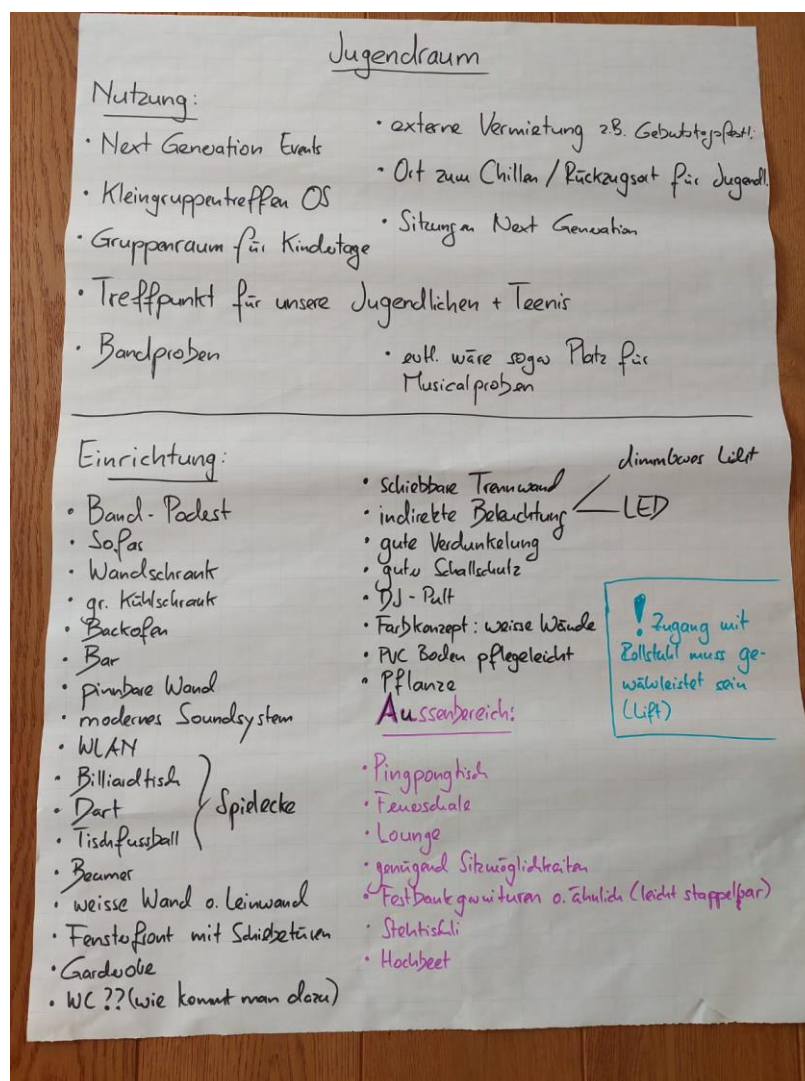 Jugendraum
Nutzung:
• Next Generation Events
• Kleingruppentreffen OS
• Gruppenraum für Kindertage
• externe Vermietung z.B. Geburtstagsfestli
• Ort zum Chillen / Rückzugsort für Jugendl.
• Sitzungen Next Generation
• Treffpunkt für unsere Jugendlichen + Teenis
• Bandproben
• evtl. wäre sogar Platz für
Musicalproben
Einrichtung:
• Band-Podest
• Sofas
• Wandschrank
• gr. Kühlschrank
• Backofen
• Bar
• pinnbare Wand
• modernes Soundsystem
• WLAN
• Billiardtisch
• Dart
• Tischfussball
Spielecke
• Beamer
• weisse Wand o. Leinwand
• Fensterfront mit Schiebetüren
• Garderobe
• WC ?? (wie kommt man dazu)
• schiebbare Trennwand
• indirekte Beleuchtung
dimmbares Licht
LED
• gute Verdunkelung
• guter Schallschutz
• DJ-Pult
• Farbkonzept: weisse Wände
• PVC Boden pflegeleicht
• Pflanze
! Zugang mit
Rollstuhl muss ge-
währleistet sein
(Lift)
Aussenbereich:
• Pingpongtisch
• Feuerschale
• Lounge
• genügend Sitzmöglichkeiten
• Festbankgarnituren o. ähnlich (leicht stappelbar)
• Stehtischli
• Hochbeet